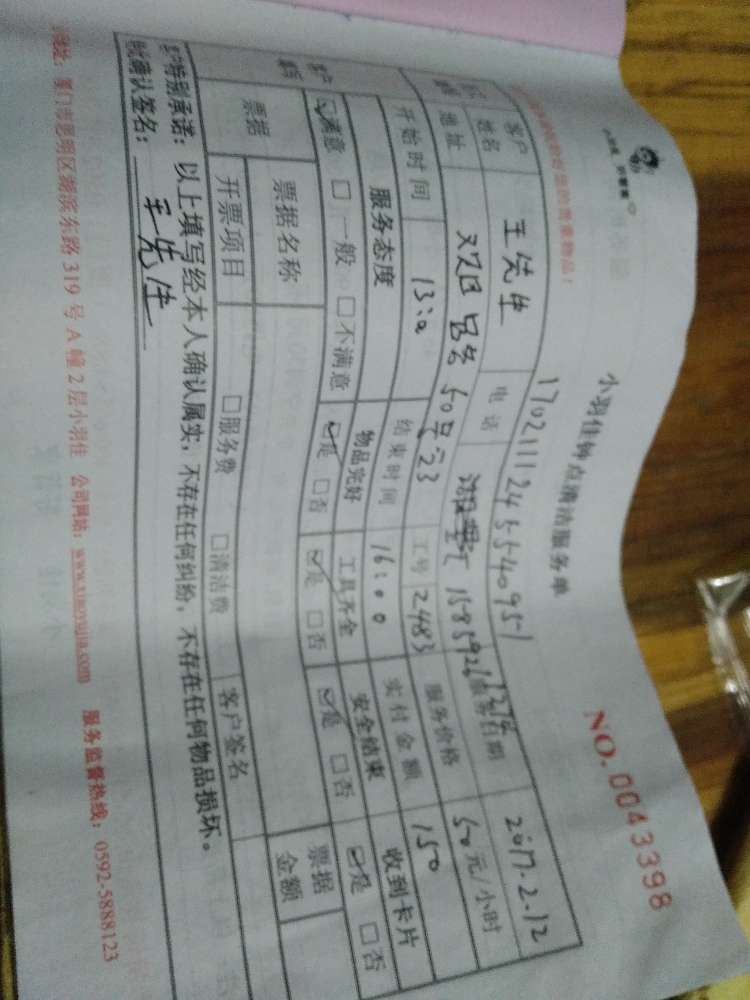 小羽佳 好管家
小羽佳钟点清洁服务单
NO. 0043398
1702111245540951
客户姓名 王先生 电话 服务日期 2017.2.12
地址 50号 服务价格 50元/小时
开始时间 结束时间 16:00 工号 2483 实付金额 150
服务态度 物品完好 工具齐全 安全结束 收到卡片
满意 一般 不满意 是 否 是 否 是 否 是 否
票据 票据名称 票据金额
开票项目 服务费 清洁费 客户签名
客户特别承诺：以上填写经本人确认属实，不存在任何纠纷，不存在任何物品损坏。
确认签名： 王先生
厦门市思明区湖滨东路319号A幢2层小羽佳 公司网站：www.xiaoyujia.com 服务监督热线：0592-5888123